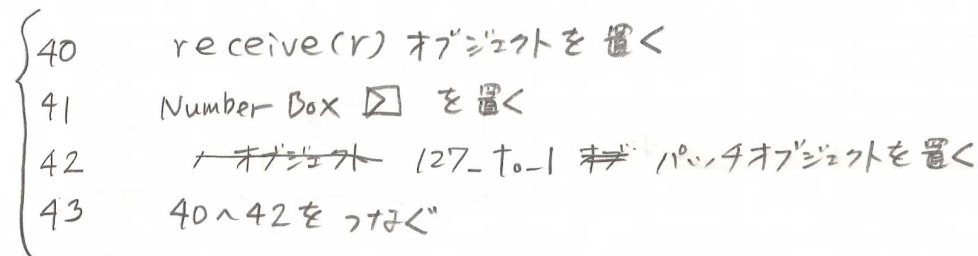 40 receive(r) オブジェクトを置く
41 Number Box を置く
42 127_to_1 パッチオブジェクトを置く
43 40~42をつなぐ